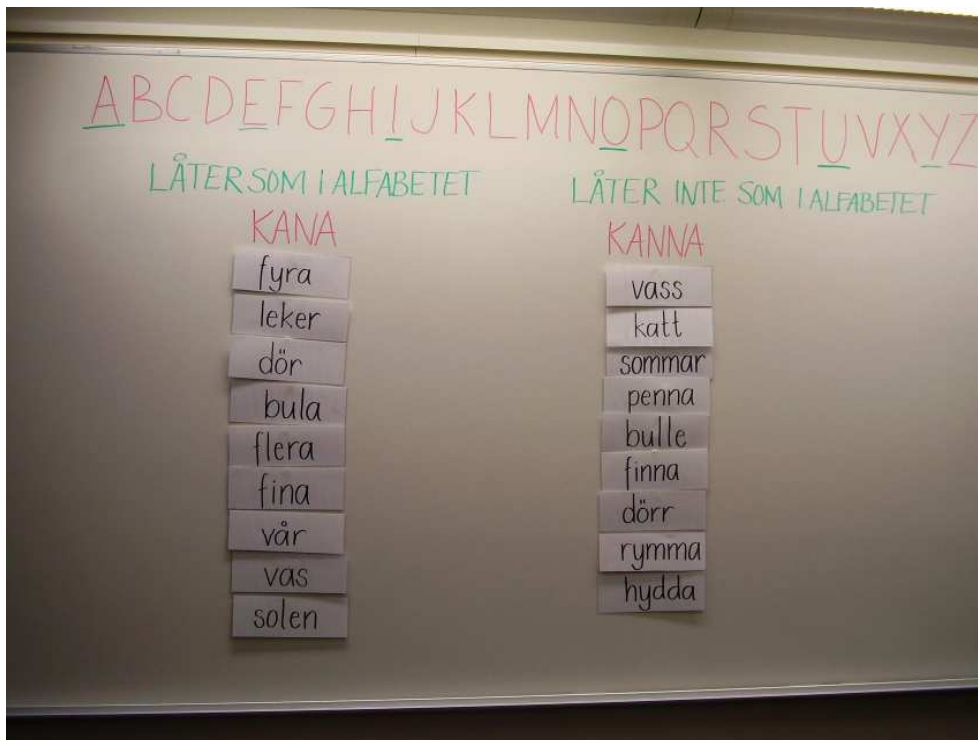 ABCDEFGHIJKLMNOPQRSTUVXYZ
LÅTER SOM I ALFABETET
KANA
fyra
leker
dör
bula
flera
fina
vår
vas
solen
LÅTER INTE SOM I ALFABETET
KANNA
vass
katt
sommar
penna
bulle
finna
dörr
rymma
hydda